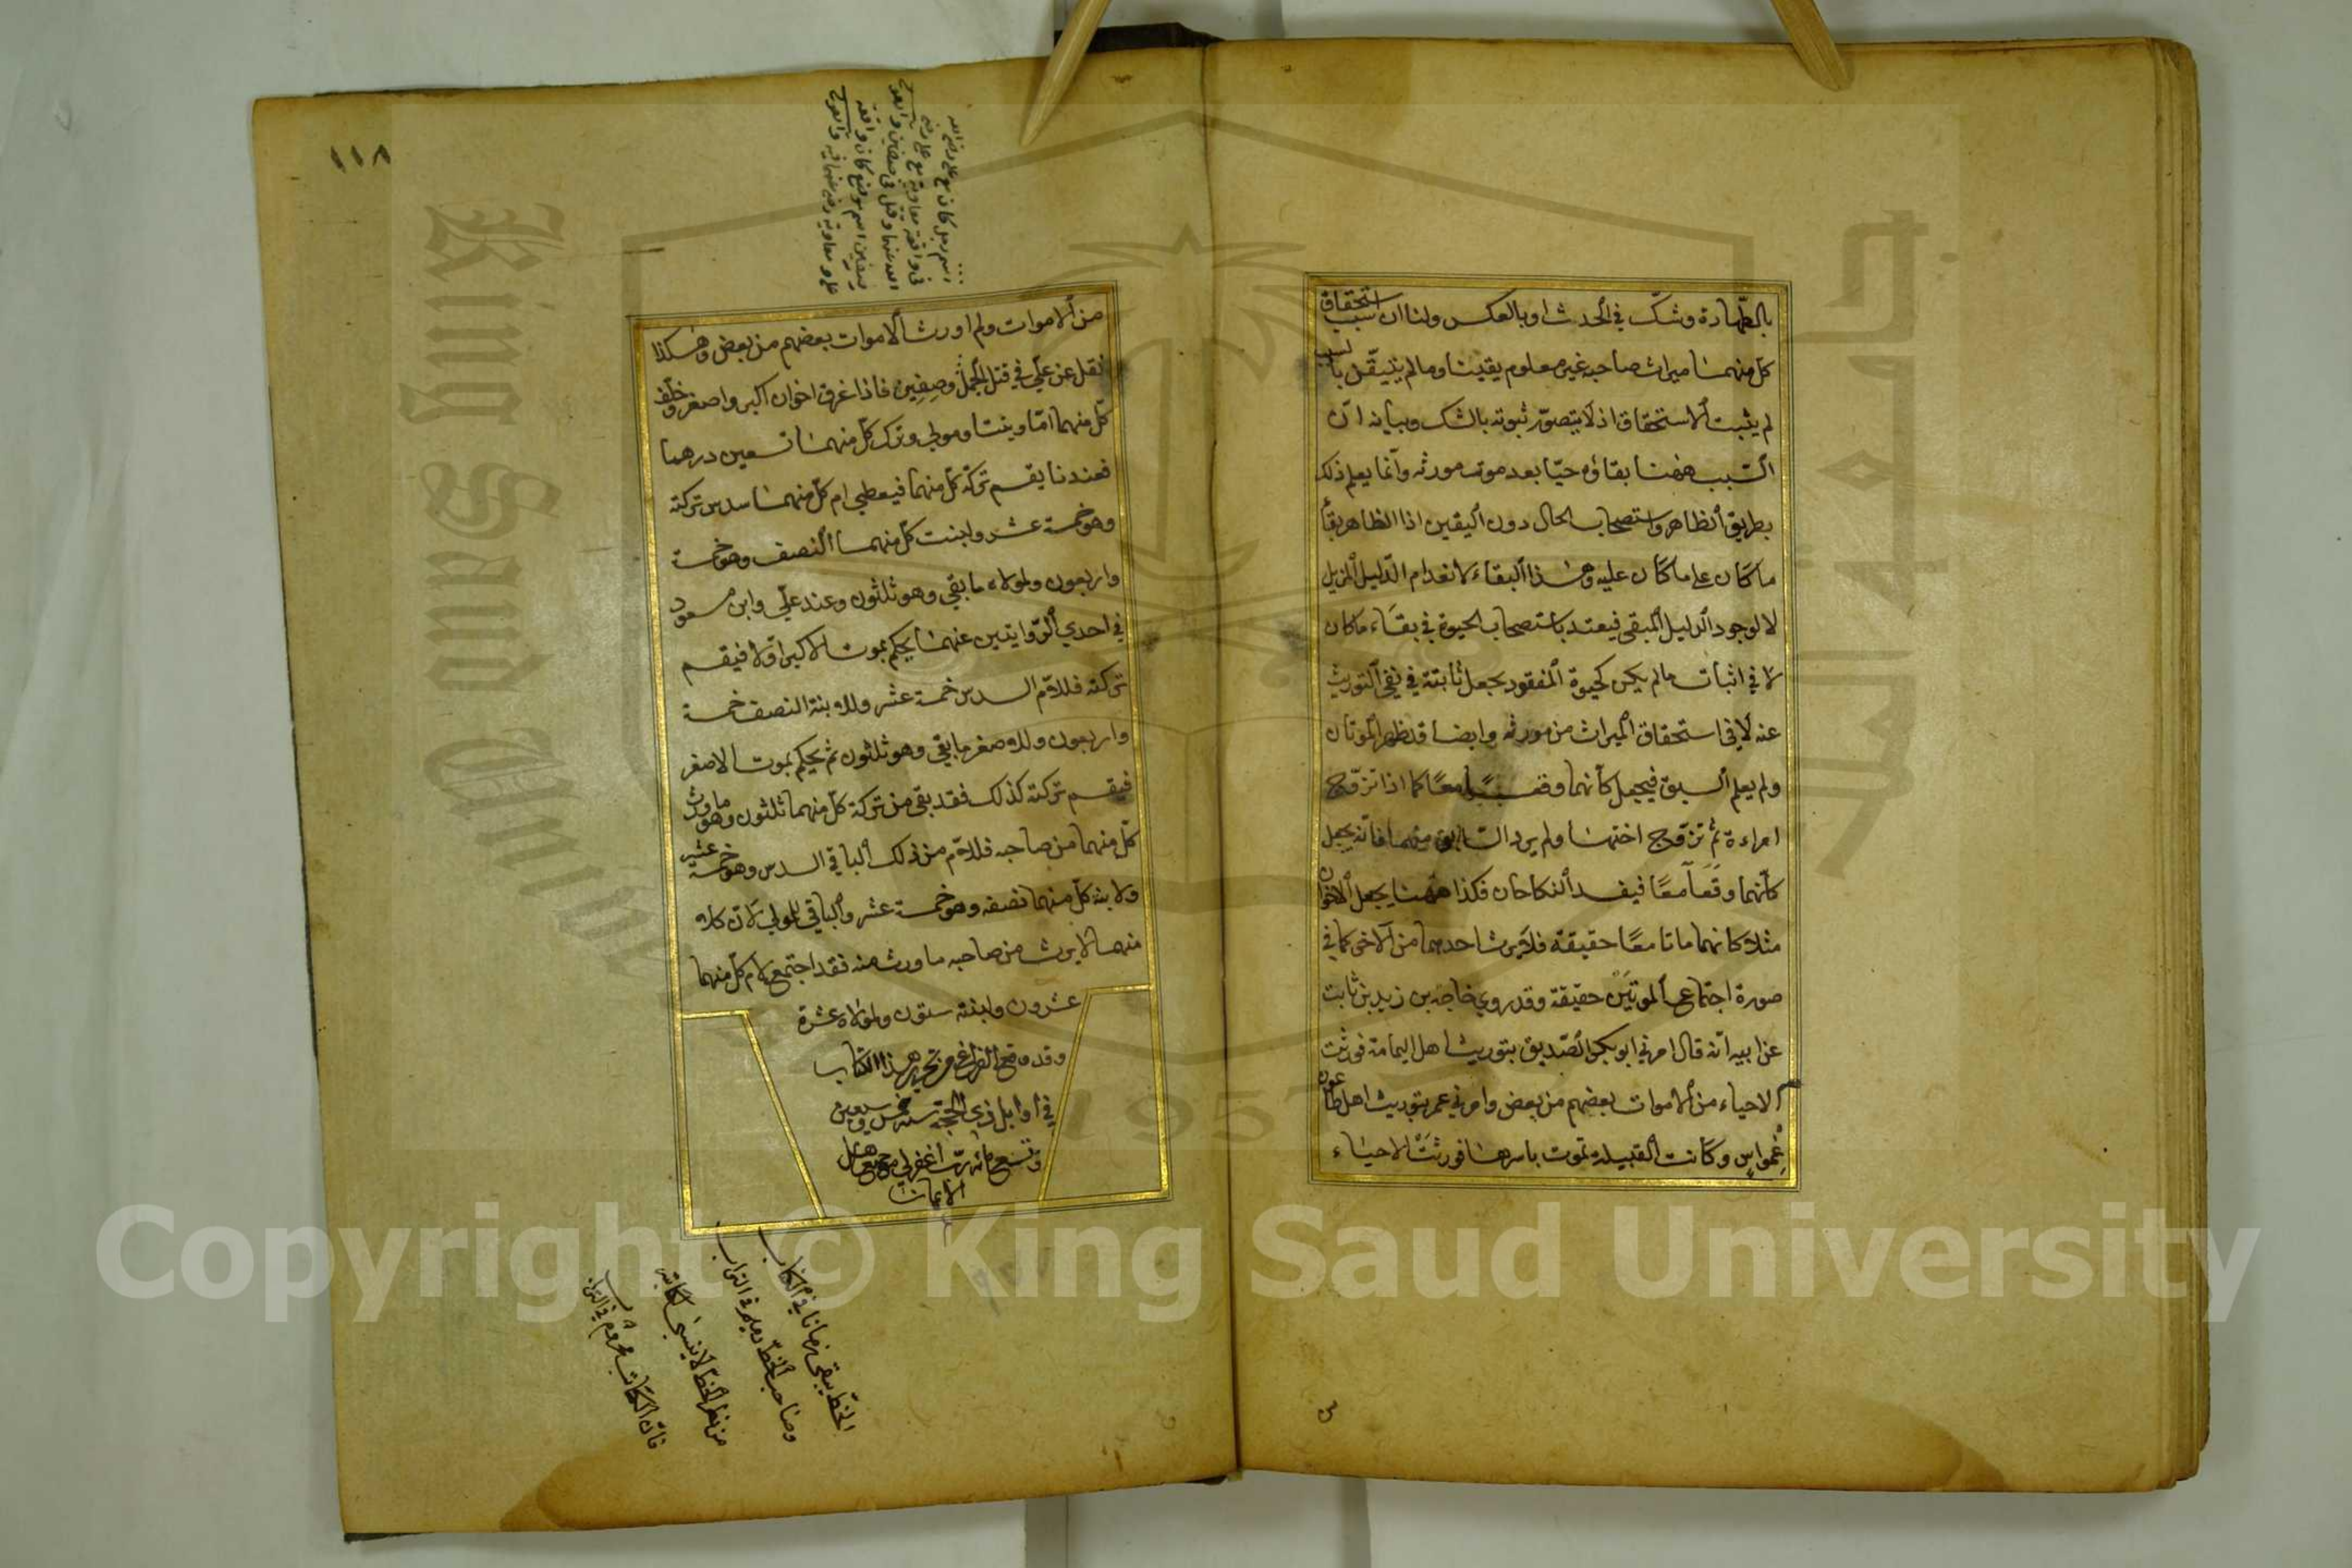 بالطهارة وشك في الحدث او بالعكس ولنا ان سبب استحقاق
كل منهما ميراث صاحبه غير معلوم يقينا وما لم يتيقن بالسبب
لم يثبت الاستحقاق اذ لا يتصور ثبوته بالشك وبيانه ان
السبب ههنا بقاؤه حيا بعد موت مورثه وانما يعلم ذلك
بطريق الظاهر واستصحاب الحال دون اليقين اذا الظاهر بقاء
ما كان على ما كان عليه وهذا البقاء لانعدام الدليل المزيل
لا لوجود الدليل المبقي فيعتد باستصحاب الحيوة في بقاء ما كان
لا في اثبات ما لم يكن كحيوة المفقود يجعل ثابتة في نفي التوريث
عنه لا في استحقاق الميراث من مورثه وايضا قد ظهر الموتان
ولم يعلم السبق فيجعل كأنهما وقعا معًا كما اذا تزوج
امراءة ثم تزوج اختها ولم يرد السابق منهما فانه يجعل
كأنهما وقعا معًا فيفسد النكاحان فكذا ههنا يجعل الاخوان
مثلا كانهما ماتا معًا حقيقة فلا يرث احدهما من الاخر كما في
صورة اجتماع الموتين حقيقة وقد روي خارجه بن زيد بن ثابت
عن ابيه انه قال امرني ابو بكر الصديق بتوريث اهل اليمامة فورثت
الاحياء من الاموات بعضهم من بعض وامرني عمر بتوريث اهل طاعون
عمواس وكانت القبيلة تموت باسرها فورثت الاحياء
١١٨
اسم رجل كان مع علي رضي الله
في واقعة معاوية مع علي رضي
الله عنهما وقتل في صفين و
صفين اسم موضع كان واقعة
علي ومعاوية رضي عنهما فيه
من الاموات ولم اورث الاموات بعضهم من بعض وهكذا
نقل عن علي في قتل الجمل وصفين فاذا غرق اخوان اكبر واصغر وخلف
كل منهما اما وبنتا ومولى وترك كل منهما تسعين درهما
فعندنا يقسم تركة كل منهما فيعطي ام كل منهما سدس تركته
وهو خمسة عشر وابنت كل منهما النصف وهو خمسة
واربعون ولمولاه ما بقي وهو ثلثون وعند علي وابن مسعود
في احدي الروايتين عنهما يحكم بموت الاكبر اولا فيقسم
تركته فللام السدس خمسة عشر وللابنة النصف خمسة
واربعون وللاصغر ما بقي وهو ثلثون ثم يحكم بموت الاصغر
فيقسم تركته كذلك فقد بقي من تركة كل منهما ثلثون وهو ما ورث
كل منهما من صاحبه فللام من ذلك الباقي السدس وهو خمسة عشر
ولابنة كل منهما نصفه وهو خمسة عشر والباقي للمولى لان كلا
منهما لا يرث من صاحبه ما ورث منه فقد اجتمع لام كل منهما
عشرون ولابنته ستون ولمولاه عشرة
وقد وقع الفراغ من تحرير هذا الكتاب
في اوايل ذي الحجة سنة خمس وسبعين
وتسع مائه رب اغفر لي مع جميع اهل
الايمان
الخط يبقى زمانا في الكتاب
وصاحب الخط رميم في التراب
من ينظر الخط لا ينسى كاتبه
فان الكاتب مرحوم في التراب
Copyright © King Saud University
1957